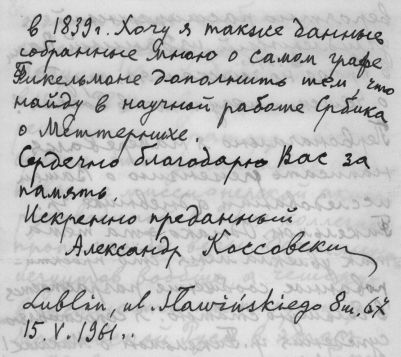 в 1839г. Хочу я также данные
собранные мною о самом графе
Фикельмоне дополнить тем, что
найду в научной работе Србика
о Меттернихе.
Сердечно благодарю Вас за
память.
Искренно преданный
Александр Коссовский
Lublin, ul. Sławińskiego 8 m. 67
15.V.1961..